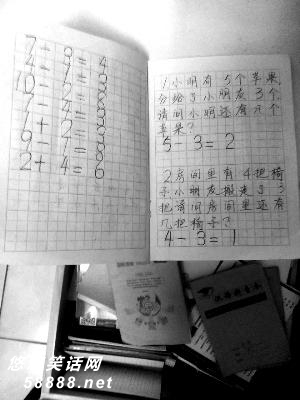 7 - 3 = 4
4 - 1 = 3
10 - 2 = 8
7 - 4 = 3
9 - 1 = 8
2 + 4 = 6
1小明有5个苹果,
分给了小朋友3个,
请问小明还有几个
苹果?
5 - 3 = 2
2房间里有4把椅
子小朋友搬走了3
把请问房间里还有
几把椅子?
4 - 3 = 1
汉语拼音本
悠悠笑话网
58888.net